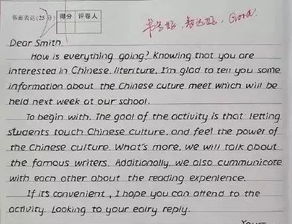 书面表达(25分)
得分 评卷人
Good.
Dear Smith,
How is everything going? Knowing that you are
interested in Chinese literiture, I'm glad to tell you some
information about the Chinese cuture meet which will be
held next week at our school.
To begin with. The goal of the activity is that letting
students touch Chinese culture, and feel the power of
the Chinese culture. What's more, we will talk about
the famous writers. Additionally, we also cummunicate
with each other about the reading experience.
If its convenient, I hope you can attend to the
activity. Looking to your eairy reply.